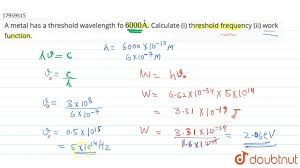 17959515
A metal has a threshold wavelength fo 6000Å. Calculate (i) threshold frequency (ii) work
function.
hν = c
λ = 6000 × 10⁻¹⁰ M
6 × 10⁻⁷ M
ν₀ = c/λ
ν₀ = 3 × 10⁸ / 6 × 10⁻⁷
ν₀ = 0.5 × 10¹⁵
= 5 × 10¹⁴ Hz
W = hν₀
W = 6.62 × 10⁻³⁴ × 5 × 10¹⁴
= 3.31 × 10⁻¹⁹ J
W = 3.31 × 10⁻¹⁹ / 1.6 × 10⁻¹⁹ = 2.06 eV
doubtnut